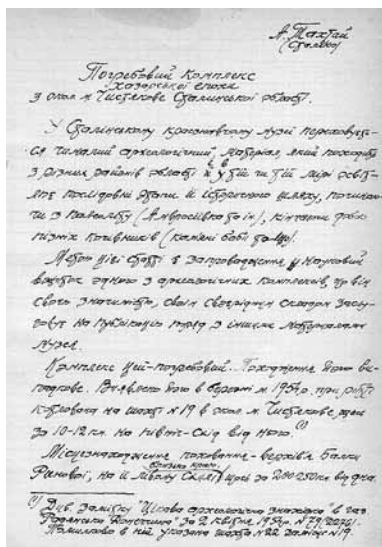 А. Тахтай
(Сталіно)
Погребовий комплекс
хозарської епохи
з окол. м. Чистякове Сталінської області.
У Сталінському краєзнавчому музеї переховуєть-
ся чималий археологічний матеріал, який походить
з різних районів області й в тій чи тій мірі освіт-
лює послідовні етапи її історичного шляху, почина-
ючи з палеоліту (Амвросіївка та ін), кінчаючи добою
пізніх кочівників (кам'яні баби тощо).
Метою цієї статті є запровадження у науковий
вжиток одного з археологічних комплексів, що він
свого значимістю, своїм своєрідним складом заслу-
говує на публікацію поряд з іншими матеріалами
музея.
Комплекс цей - погребовий. Походження його ви-
падкове. Виявлено його в березні м. 1954р. при
котлована на шахті №19 в окол. м. Чистякове,
за 10-12 км. на північ-схід від нього. (1)
Місцезнаходження поховання - верхів'я балки
Ранової, на її лівому схилі за 200-250 км від дна.
(1) Див. замітку "Цікава археологічна знахідка" в газ.
"Радянська Донеччина" за 2 квітня 1954р. №79
Помилково в ній указана шахта №22 замісць №19.